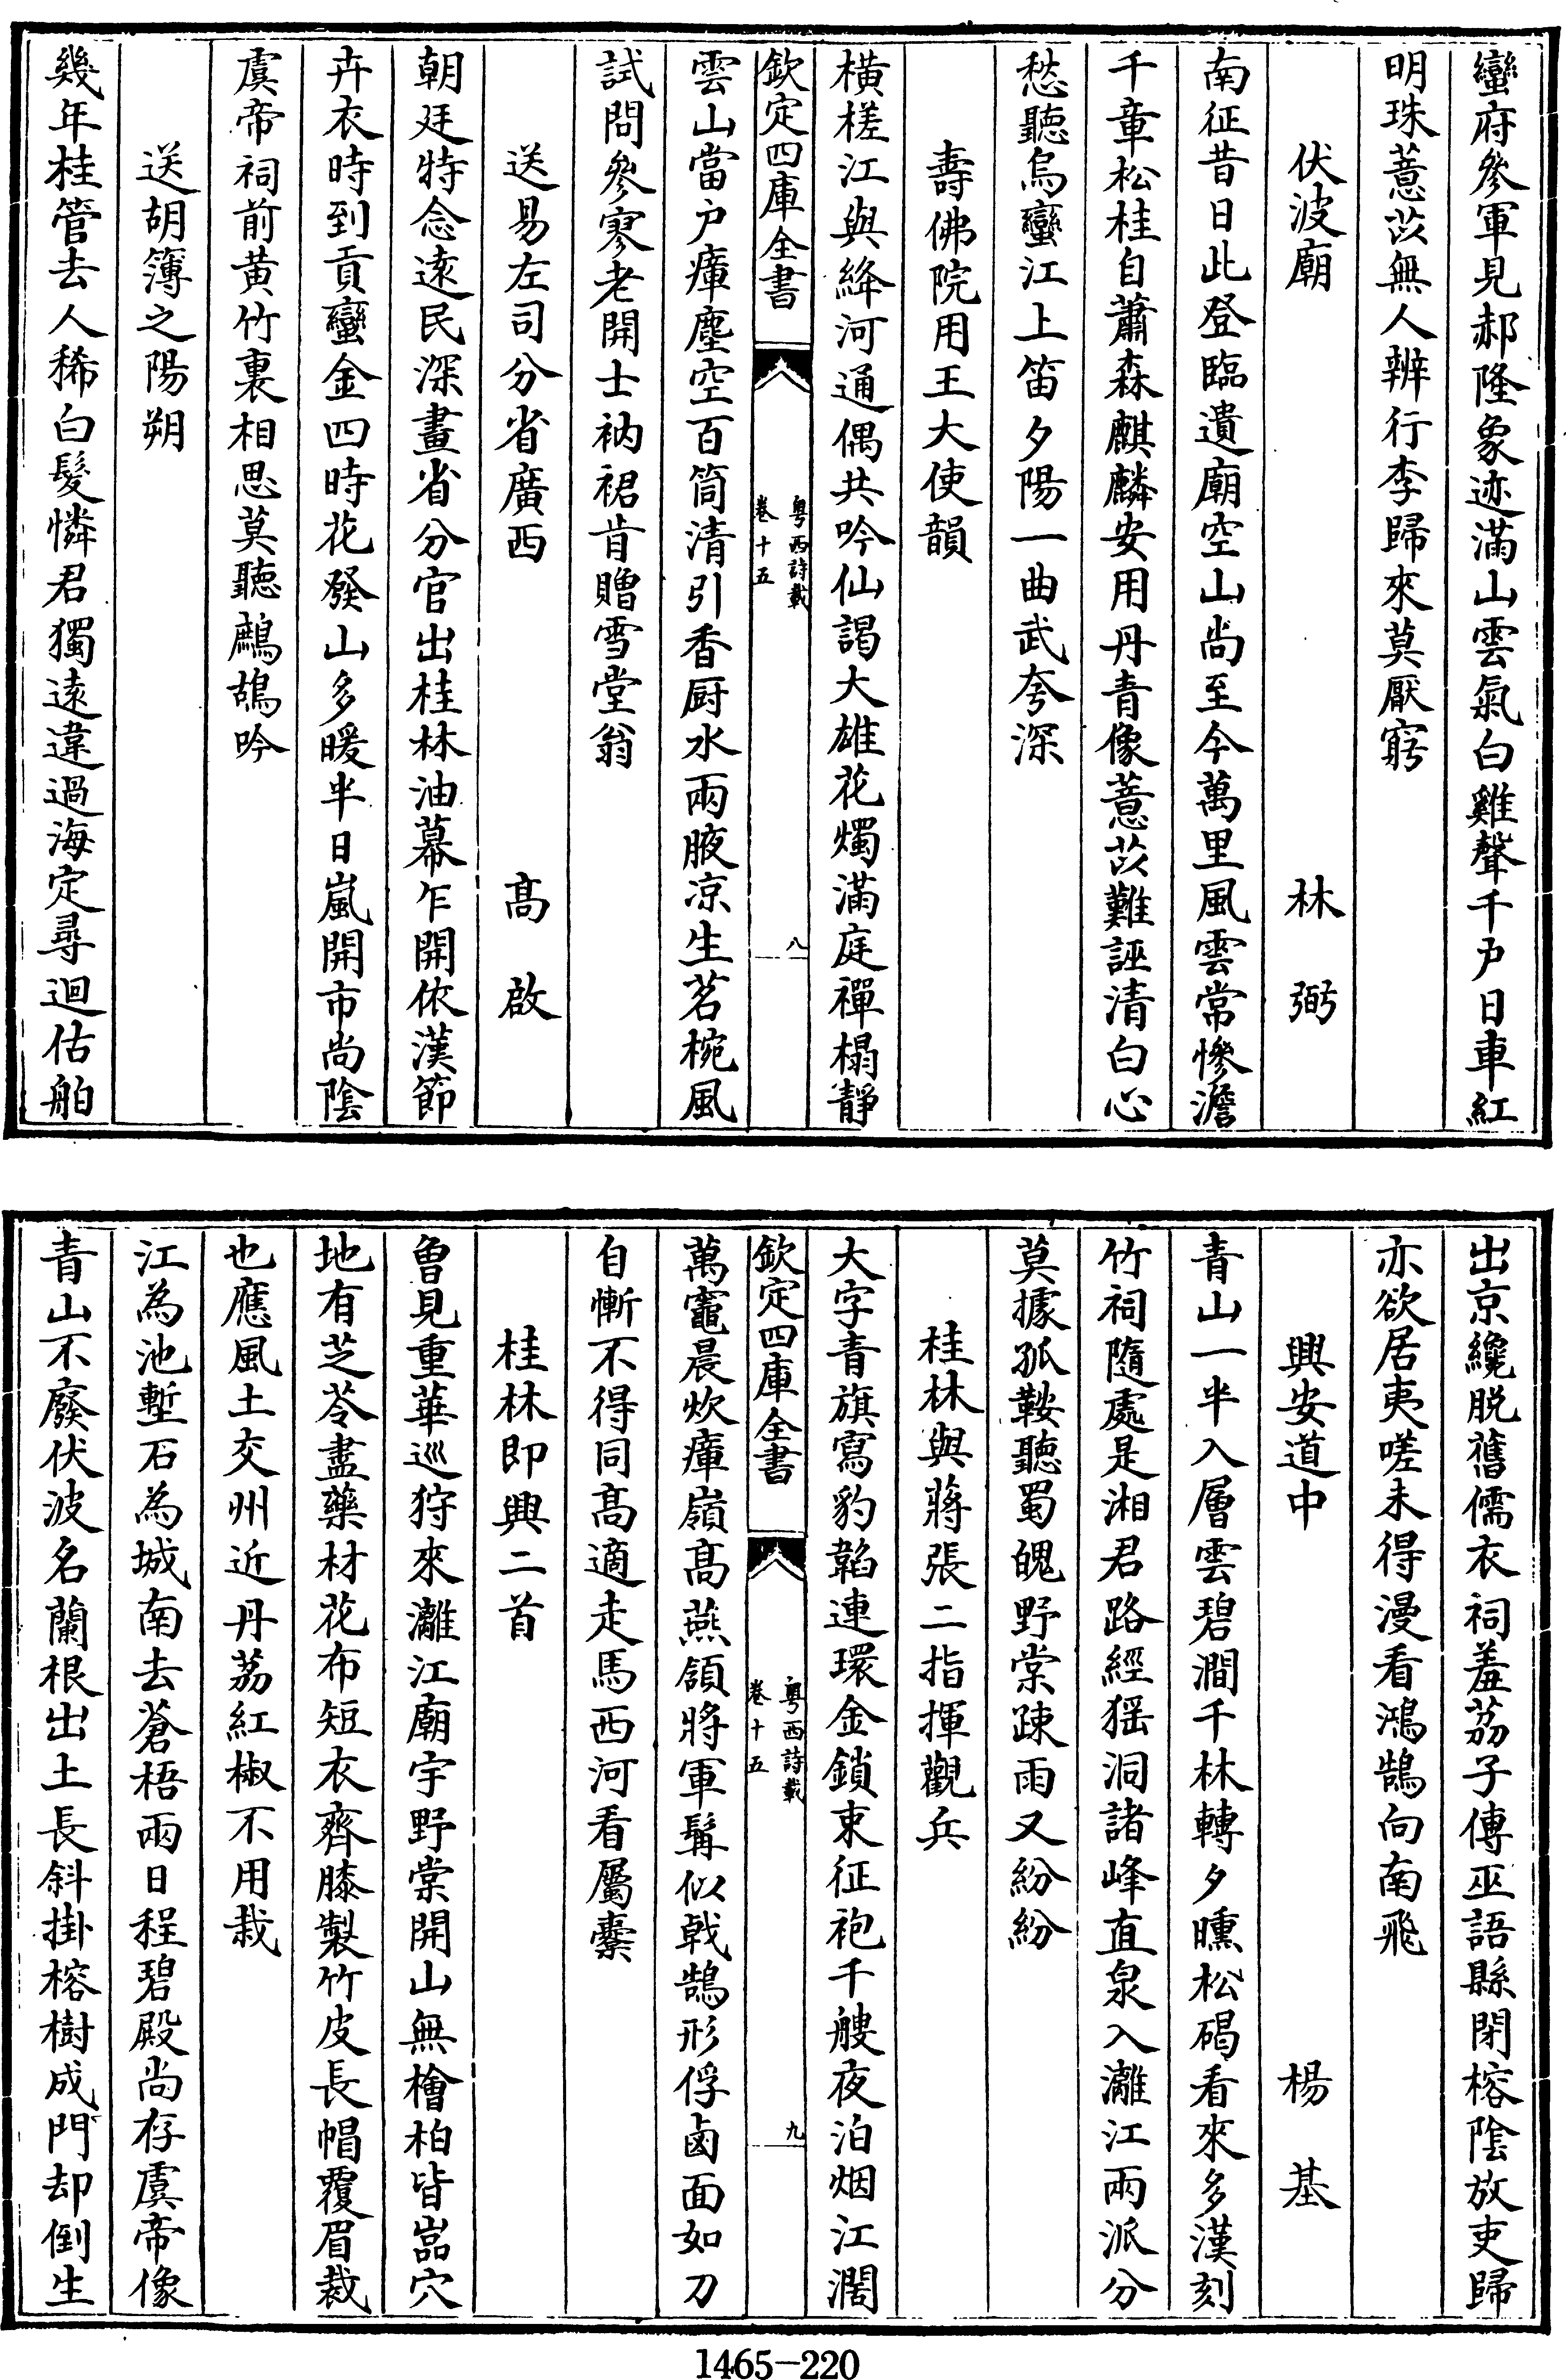 蠻府參軍見郝隆象迹滿山雲氣白雞聲千户日車紅
明珠薏苡無人辨行李歸來莫厭窮
伏波廟 林弼
南征昔日此登臨遺廟空山尚至今萬里風雲常慘澹
千章松桂自蕭森麒麟安用丹青像薏苡難誣清白心
愁聽烏蠻江上笛夕陽一曲武夸深
壽佛院用王大使韻
橫槎江與絳河通偶共吟仙謁大雄花燭滿庭禪榻靜
欽定四庫全書 粤西詩載 卷十五 八
雲山當户瘴塵空百筒清引香厨水兩腋凉生茗椀風
試問參寥老開士衲裙肯贈雪堂翁
送易左司分省廣西 髙啟
朝廷特念逺民深畫省分官出桂林油幕乍開依漢節
卉衣時到貢蠻金四時花發山多暖半日嵐開市尚陰
虞帝祠前黄竹裏相思莫聽鷓鴣吟
送胡簿之陽朔
幾年桂管去人稀白髮憐君獨逺違過海定尋迴估舶
出京纔脱舊儒衣祠羞荔子傳巫語縣閉榕陰放吏歸
亦欲居夷嗟未得漫看鴻鵠向南飛
興安道中 楊基
青山一半入層雲碧澗千林轉夕曛松碣看來多漢刻
竹祠隨處是湘君路經猺洞諸峰直泉入灕江兩派分
莫據孤鞍聽蜀魄野棠疎雨又紛紛
桂林與蔣張二指揮觀兵
大字青旗寫豹韜連環金鎖束征袍千艘夜泊烟江濶
欽定四庫全書 粤西詩載 卷十五 九
萬竈晨炊瘴嶺髙燕頷將軍髯似戟鵠形俘鹵面如刀
自慚不得同髙適走馬西河看屬櫜
桂林即興二首
曾見重華巡狩來灕江廟宇野棠開山無檜柏皆嵓穴
地有芝苓盡藥材花布短衣齊膝製竹皮長帽覆眉裁
也應風土交州近丹荔紅椒不用栽
江為池塹石為城南去蒼梧兩日程碧殿尚存虞帝像
青山不廢伏波名蘭根出土長斜掛榕樹成門却倒生
1465-220